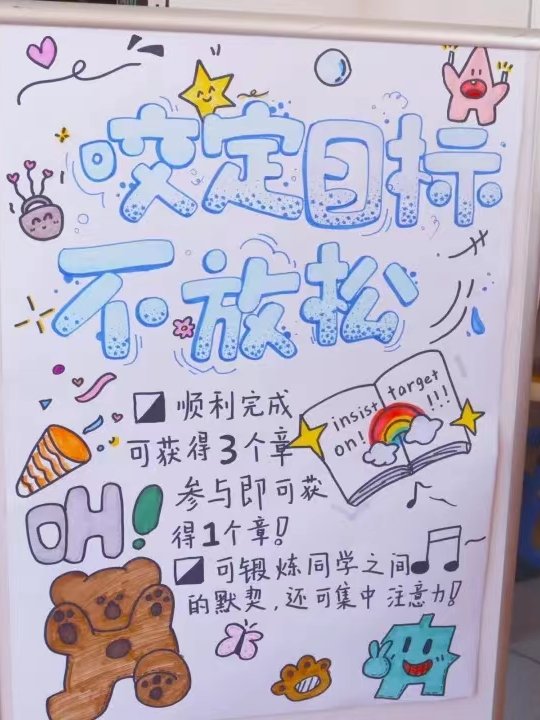 咬定目标
不放松
顺利完成
可获得3个章
参与即可获
得1个章!
可锻炼同学之间
的默契,还可集中注意力!
insist
on!
target
!!!
OH!